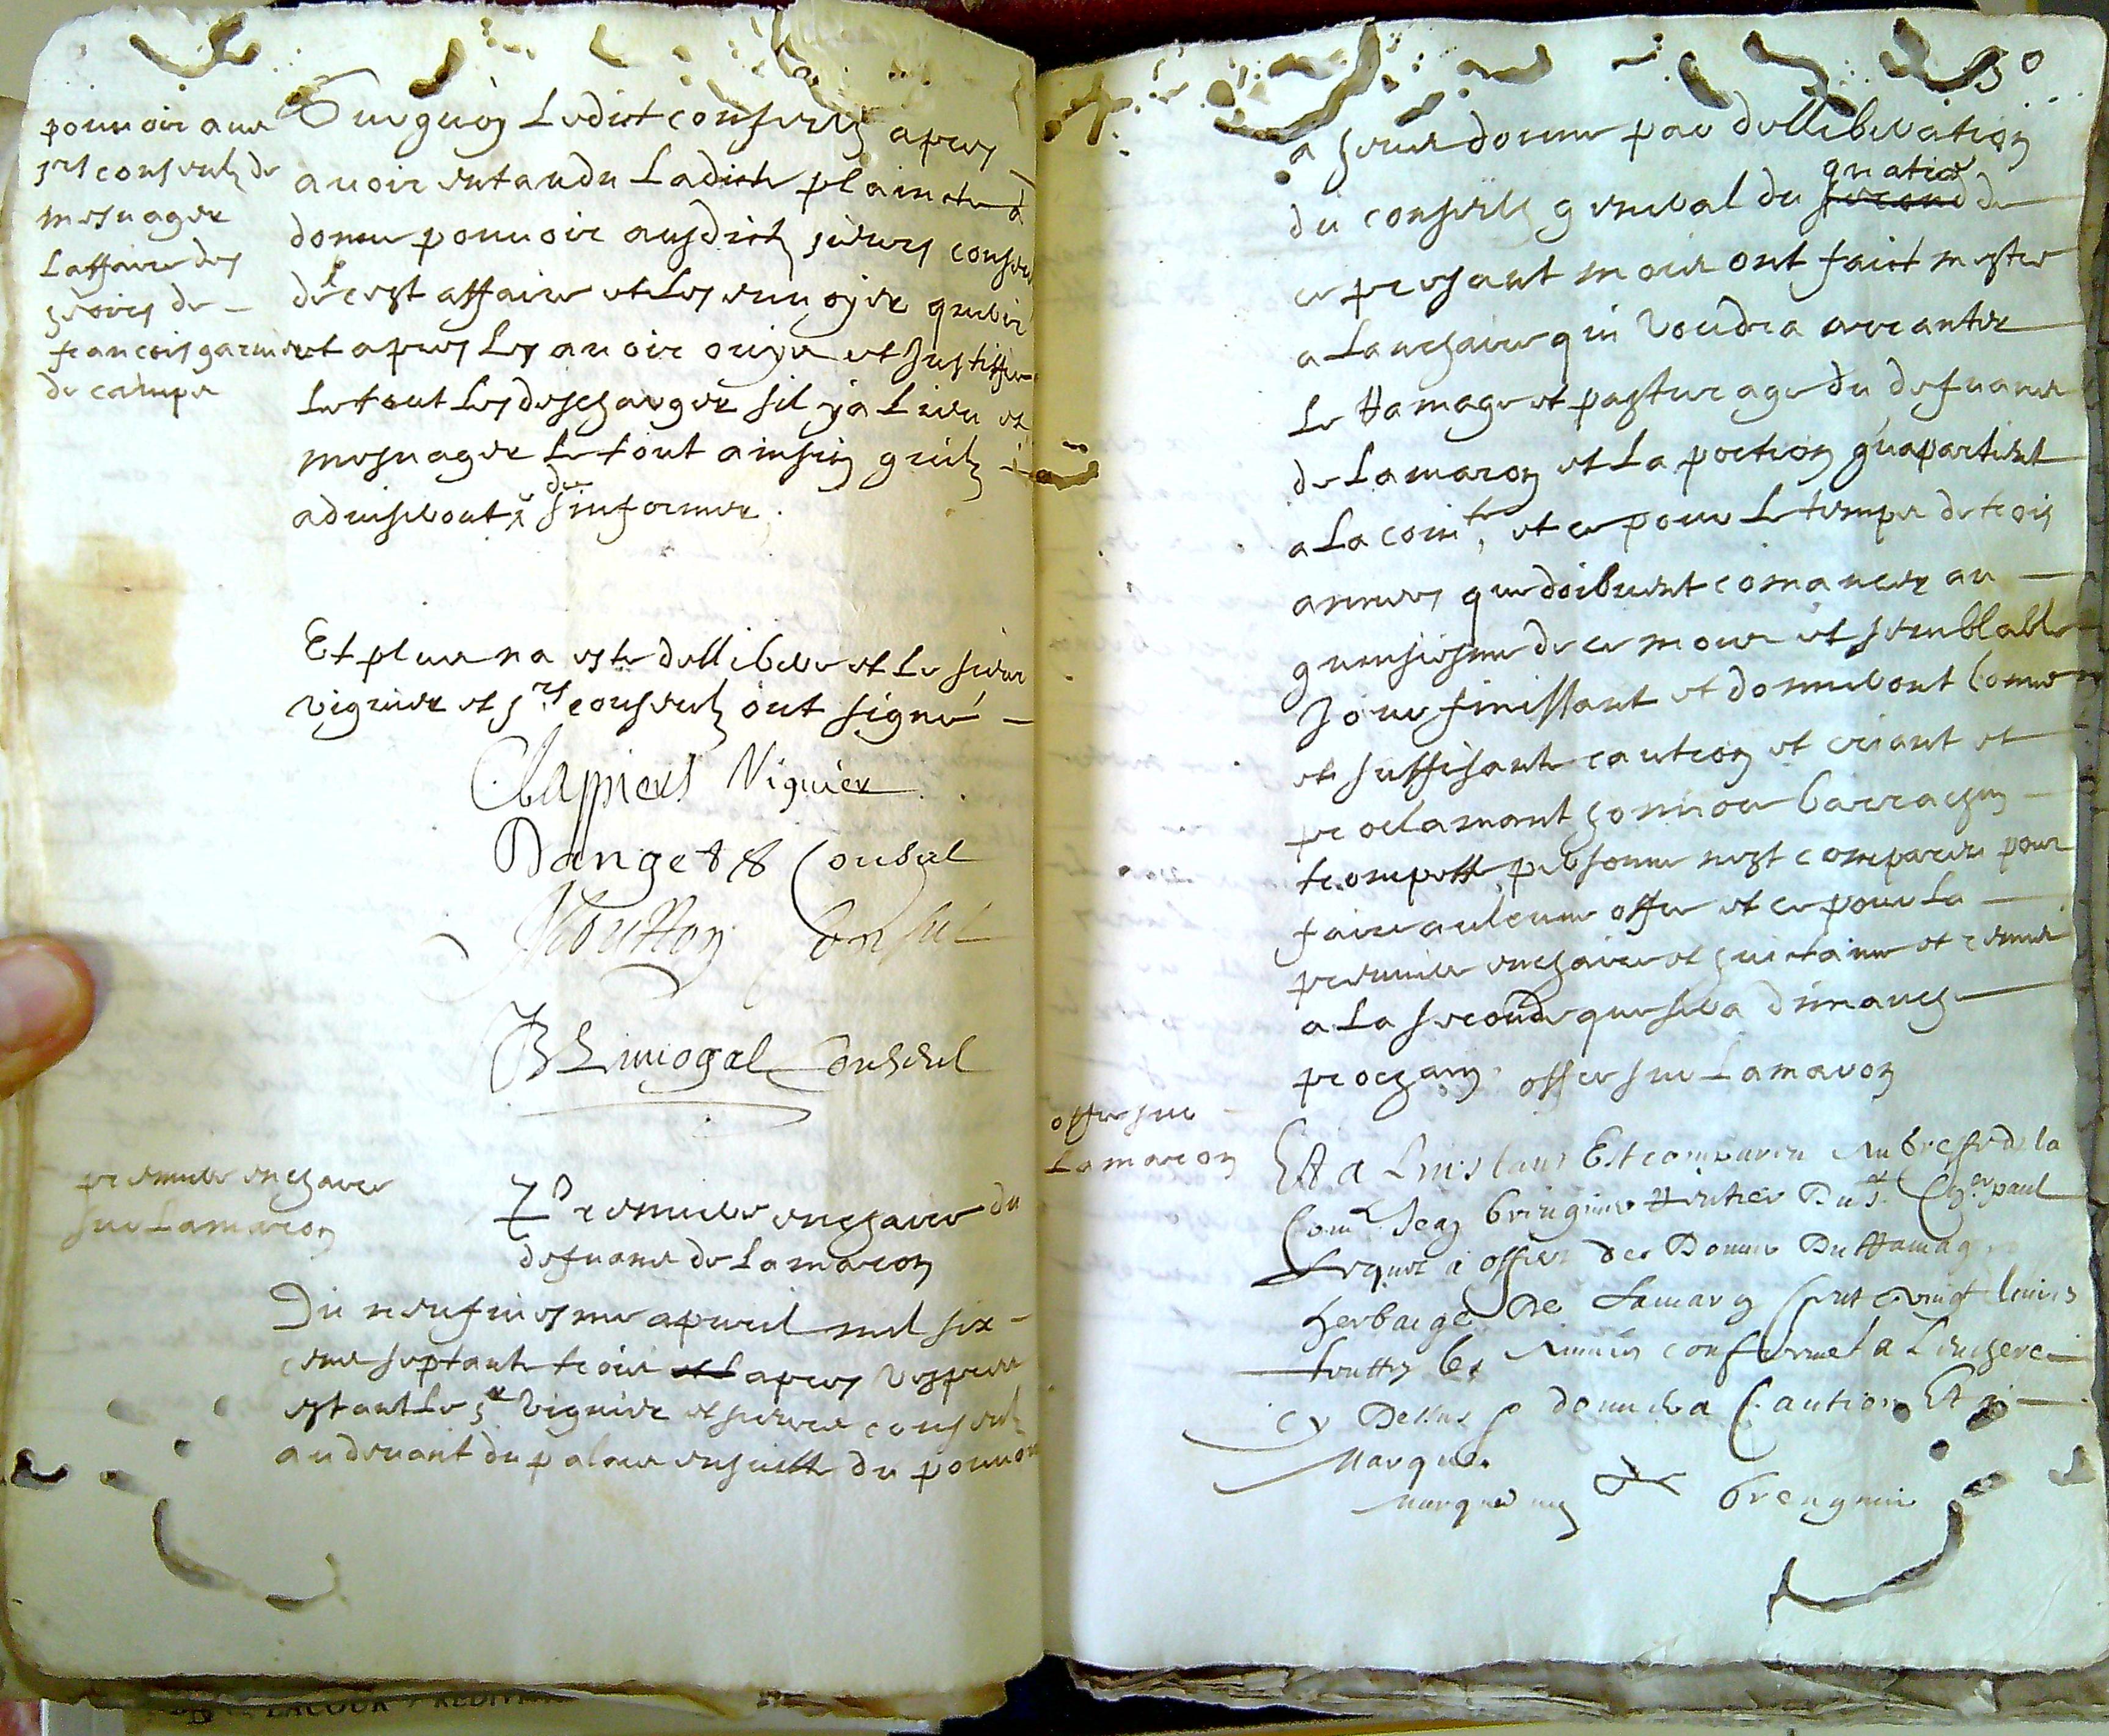 pouuoir aux
srs conseuls de
mesnager
Laffaire des
heoirs de
francois garnier
de calupe
Surquoy Ledict conseilh apres
auoir entandu Ladicte plaincte a
donne pouuoir ausdicts sieurs conseuls
de cest affaire et les enuoyer querir
et apres Les auoir ouye et Justiffie
Le tout Les descharger sil y a Lieu et
mesnager Le tout ainsin quilz
aduiseront de sinformer
Et plus na este dellibere et Le sieur
viguier et srs conseuls ont signe
Clappiers Viguier
Danget Consul
Moutton Consul
B Limogal Conseul
premiere enchaire
sur Lamaron
Premiere enchaire du
defuans de Lamaron
Du neufuiesme apuril mil six
cens septante trois apres vespres
estant Le sr viguier et sieurs conseuls
au deuant du palais ensuitte du pouuoir
50
a eux donne par dellibération
du conseilh general du quatre de
ce presant mois ont faict mettre
a Lanchaire qui voudra arranter
Le Hamage et pasturage du defuans
de Lamaron et La portion quapartient
a La comte, et ce pour Le temps de trois
annees que doibuent comancer au
quinsiesme de ce mois et semblable
Jour finissant et donneront bonne
et suffisante caution et criant et
proclamant honnore barrachin
trompette, personne nest compareu pour
faire aulcune offre et ce pour La
premiere enchaire et
a La seconde que sera dimanche
prochain offre sur Lamaron
offre sur
Lamaron
Et a Linstant Est comparu
Comte Jean bringuier Du Sr Cher paul
a offert de Donner Du Hamage
herbaige De Lamaron vingt liures
touttes les Annees conforme a Lenchere
cy Dessus donnera Caution Et
Marque
marque bringuier